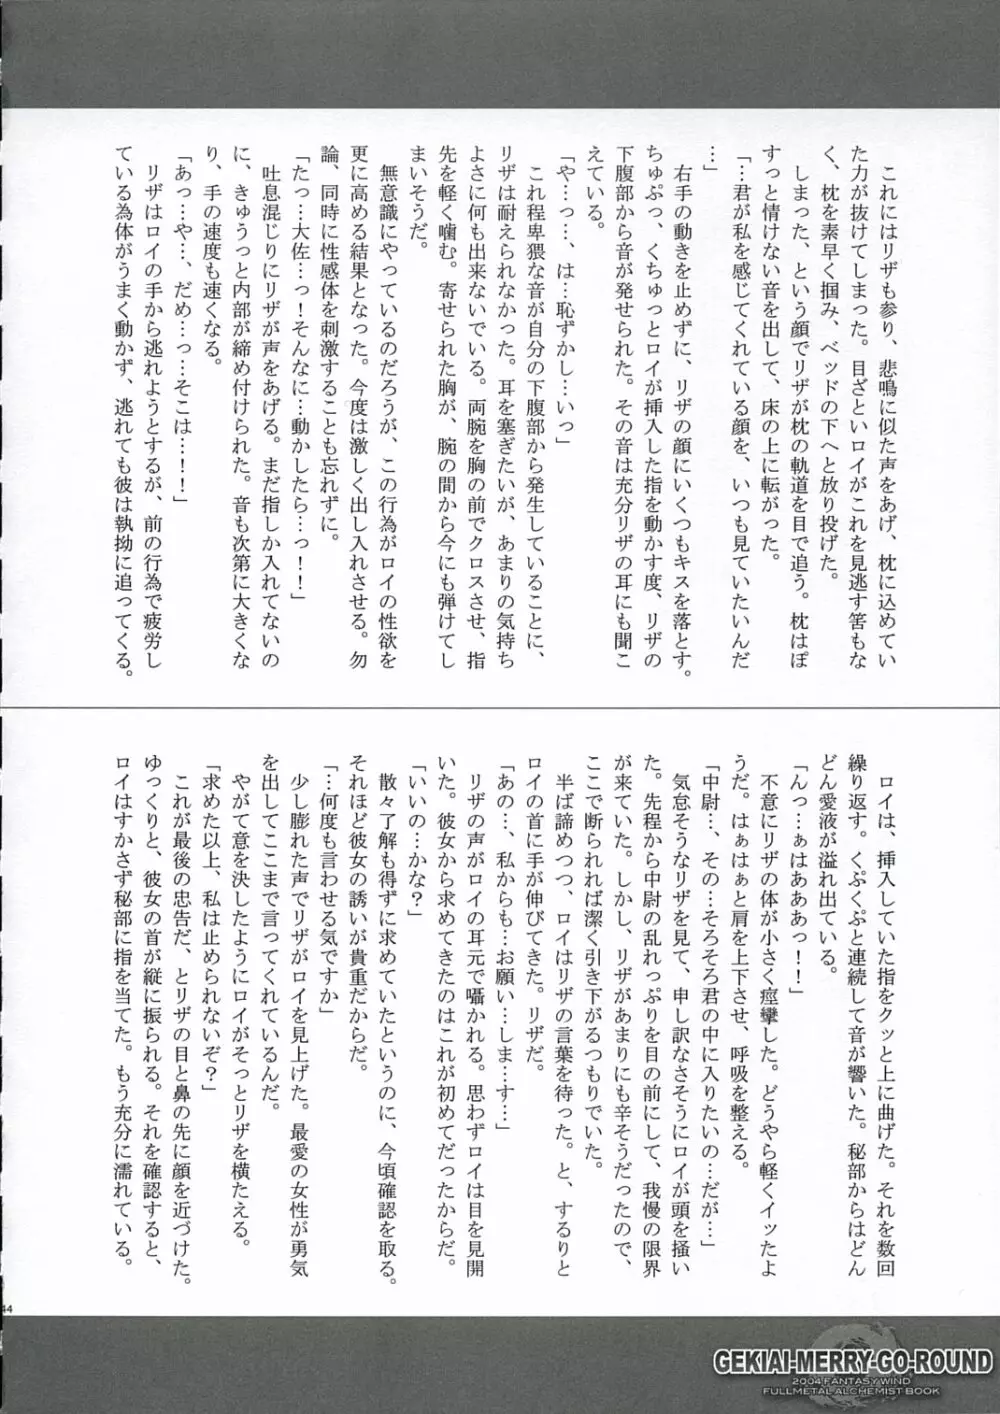 これにはリザも参り、悲鳴に似た声をあげ、枕に込めてい
た力が抜けてしまった。目ざといロイがこれを見逃す筈もな
く、枕を素早く掴み、ベッドの下へと放り投げた。
しまった、という顔でリザが枕の軌道を目で追う。枕はぽ
すっと情けない音を出して、床の上に転がった。
「…君が私を感じてくれている顔を、いつも見ていたいんだ
…」
右手の動きを止めずに、リザの顔にいくつもキスを落とす。
ちゅぷっ、くちゅっとロイが挿入した指を動かす度、リザの
下腹部から音が発せられた。その音は充分リザの耳にも聞こ
えている。
「や…っ…、は…恥ずかし…いっ」
これ程卑猥な音が自分の下腹部から発生していることに、
リザは耐えられなかった。耳を塞ぎたいが、あまりの気持ち
よさに何も出来ないでいる。両腕を胸の前でクロスさせ、指
先を軽く噛む。寄せられた胸が、腕の間から今にも弾けてし
まいそうだ。
無意識にやっているのだろうが、この行為がロイの性欲を
更に高める結果となった。今度は激しく出し入れさせる。勿
論、同時に性感体を刺激することも忘れずに。
「たっ…大佐…っ！そんなに…動かしたら…っ！！」
吐息混じりにリザが声をあげる。まだ指しか入れてないの
に、きゅうっと内部が締め付けられた。音も次第に大きくな
り、手の速度も速くなる。
「あっ…や…、だめ…っ…そこは…！！」
リザはロイの手から逃れようとするが、前の行為で疲労し
ている為体がうまく動かず、逃れても彼は執拗に追ってくる。
ロイは、挿入していた指をクッと上に曲げた。それを数回
繰り返す。くぷくぷと連続して音が響いた。秘部からはどん
どん愛液が溢れ出ている。
「んっ…ぁはあああっ！！」
不意にリザの体が小さく痙攣した。どうやら軽くイッたよ
うだ。はぁはぁと肩を上下させ、呼吸を整える。
「中尉…、その…そろそろ君の中に入りたいの…だが…」
気怠そうなリザを見て、申し訳なさそうにロイが頭を掻い
た。先程から中尉の乱れっぷりを目の前にして、我慢の限界
が来ていた。しかし、リザがあまりにも辛そうだったので、
ここで断られれば潔く引き下がるつもりでいた。
半ば諦めつつ、ロイはリザの言葉を待った。と、するりと
ロイの首に手が伸びてきた。リザだ。
「あの…、私からも…お願い…しま…す…」
リザの声がロイの耳元で囁かれる。思わずロイは目を見開
いた。彼女から求めてきたのはこれが初めてだったからだ。
「いいの…かな？」
散々了解も得ずに求めていたというのに、今頃確認を取る。
それほど彼女の誘いが貴重だからだ。
「…何度も言わせる気ですか」
少し膨れた声でリザがロイを見上げた。最愛の女性が勇気
を出してここまで言ってくれているんだ。
やがて意を決したようにロイがそっとリザを横たえる。
「求めた以上、私は止められないぞ？」
これが最後の忠告だ、とリザの目と鼻の先に顔を近づけた。
ゆっくりと、彼女の首が縦に振られる。それを確認すると、
ロイはすかさず秘部に指を当てた。もう充分に濡れている。
44
GEKIAI-MERRY-GO-ROUND
2004 FANTASY WIND
FULLMETAL ALCHEMIST BOOK